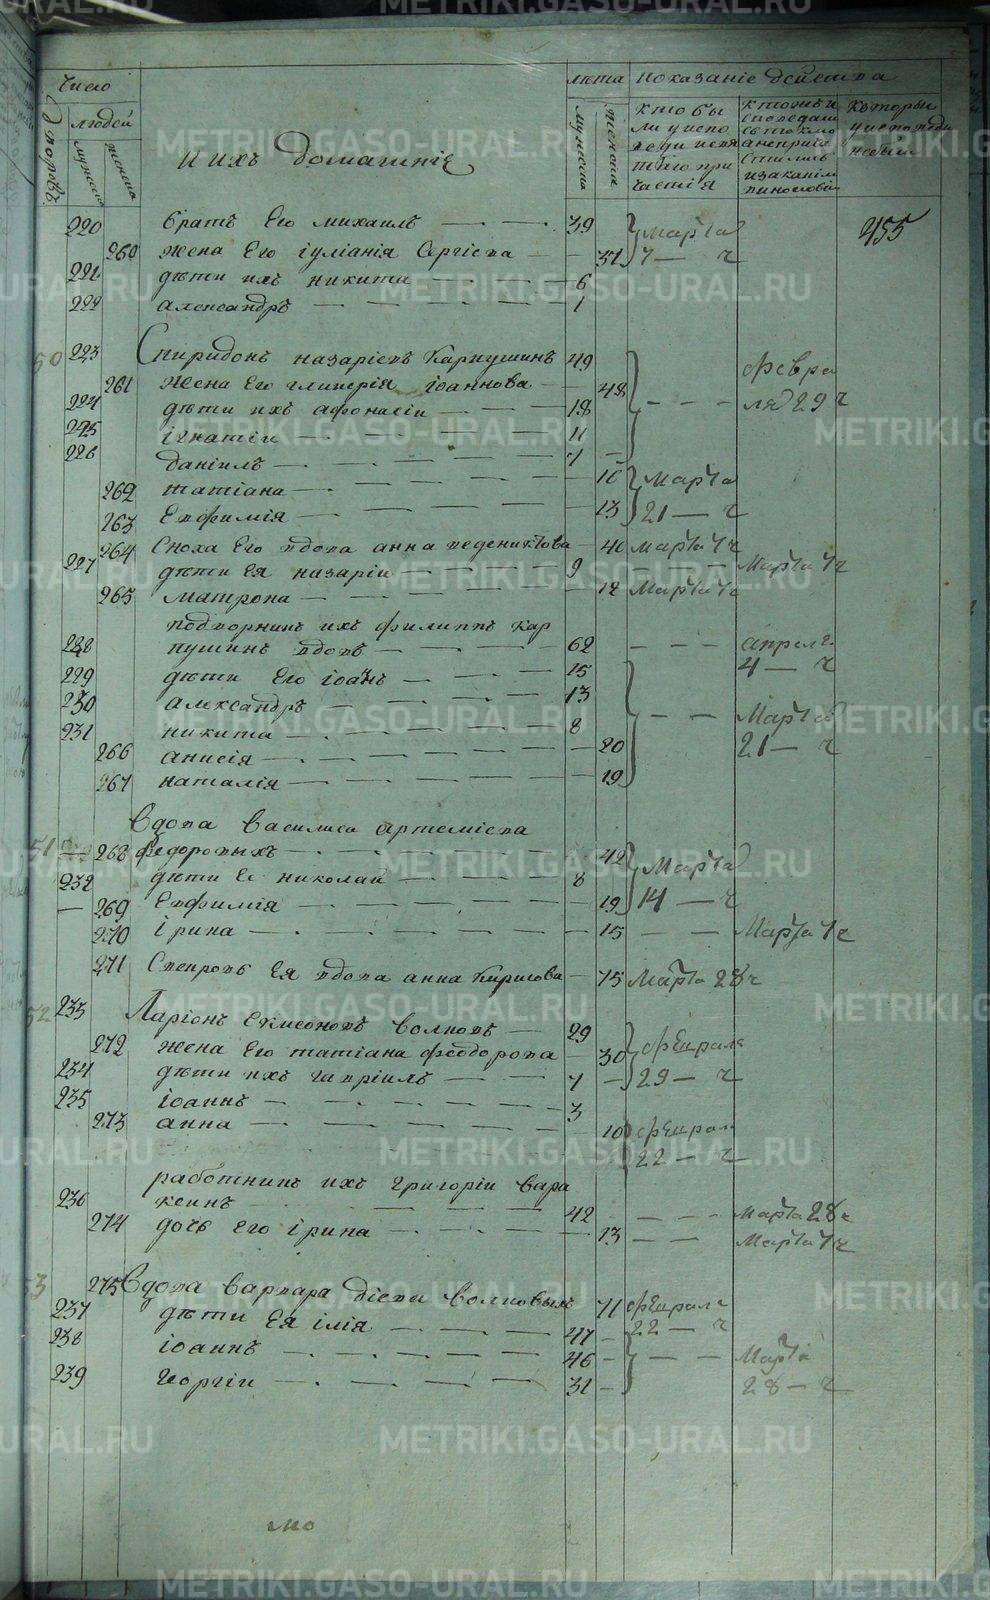 Число
людей
Дворовъ
мужеска
женска
и ихъ домашнія
лѣта
мужеска
женска
показаніе дѣйства
кто бы
ли у испо
веди и свя
таго при
частія
которыи
исповедали
у испове
небыли
455
220 братъ Его михаилъ 39
260 жена Его іуліанія Сергіева 31 Марта 7 ч
221 дѣти ихъ никита 6
222 александръ 1
50 223 Спиридонъ назаріевъ Карпушинъ 49 февра
261 жена Его гликерія іоаннова 48
224 дѣти ихъ афонасіи 18 ля 29 ч
225 ігнатіи 11
226 даніилъ 7
262 татіана 16 Марта
263 Евфимія 13 21 ч
264 Сноха Его вдова анна ведениктова 40 Марта 7 ч
227 дѣти Ея назаріи 9 Марта 7 ч
265 матрона 12 Марта 7 ч
подворникъ ихъ филиппъ кар
228 пушинъ вдовъ 62 апреля 4 ч
229 дѣти Его іоанъ 15
230 александръ 13
231 никита 8 Марта
266 анисія 20 21 ч
267 наталія 19
Вдова василиса артеміева
51 268 федоровыхъ 42 Марта
232 дѣти Ее николай 8
269 Евфимія 19 14 ч
270 ірина 15 Марта 7 ч
271 Свекровь Ея вдова анна Кирилова 75 Марта 28 ч
52 233 Ларіонъ Симеоновъ волковъ 29
272 жена Его татіана феодорова 30 февраля
234 дѣти ихъ гавріилъ 7 29 ч
235 іоаннъ 3
273 анна 10 февраля
22 ч
работникъ ихъ григоріи вара
236 ксинъ 42 Марта 28 ч
274 дочь Его ірина 13 Марта 7 ч
53 275 Вдова варвара діева волковыхъ 71 февраля
237 дѣти Ея ілія 47 22 ч
238 іоаннъ 46 Марта
239 георгіи 31 28 ч
METRIKI.GASO-URAL.RU